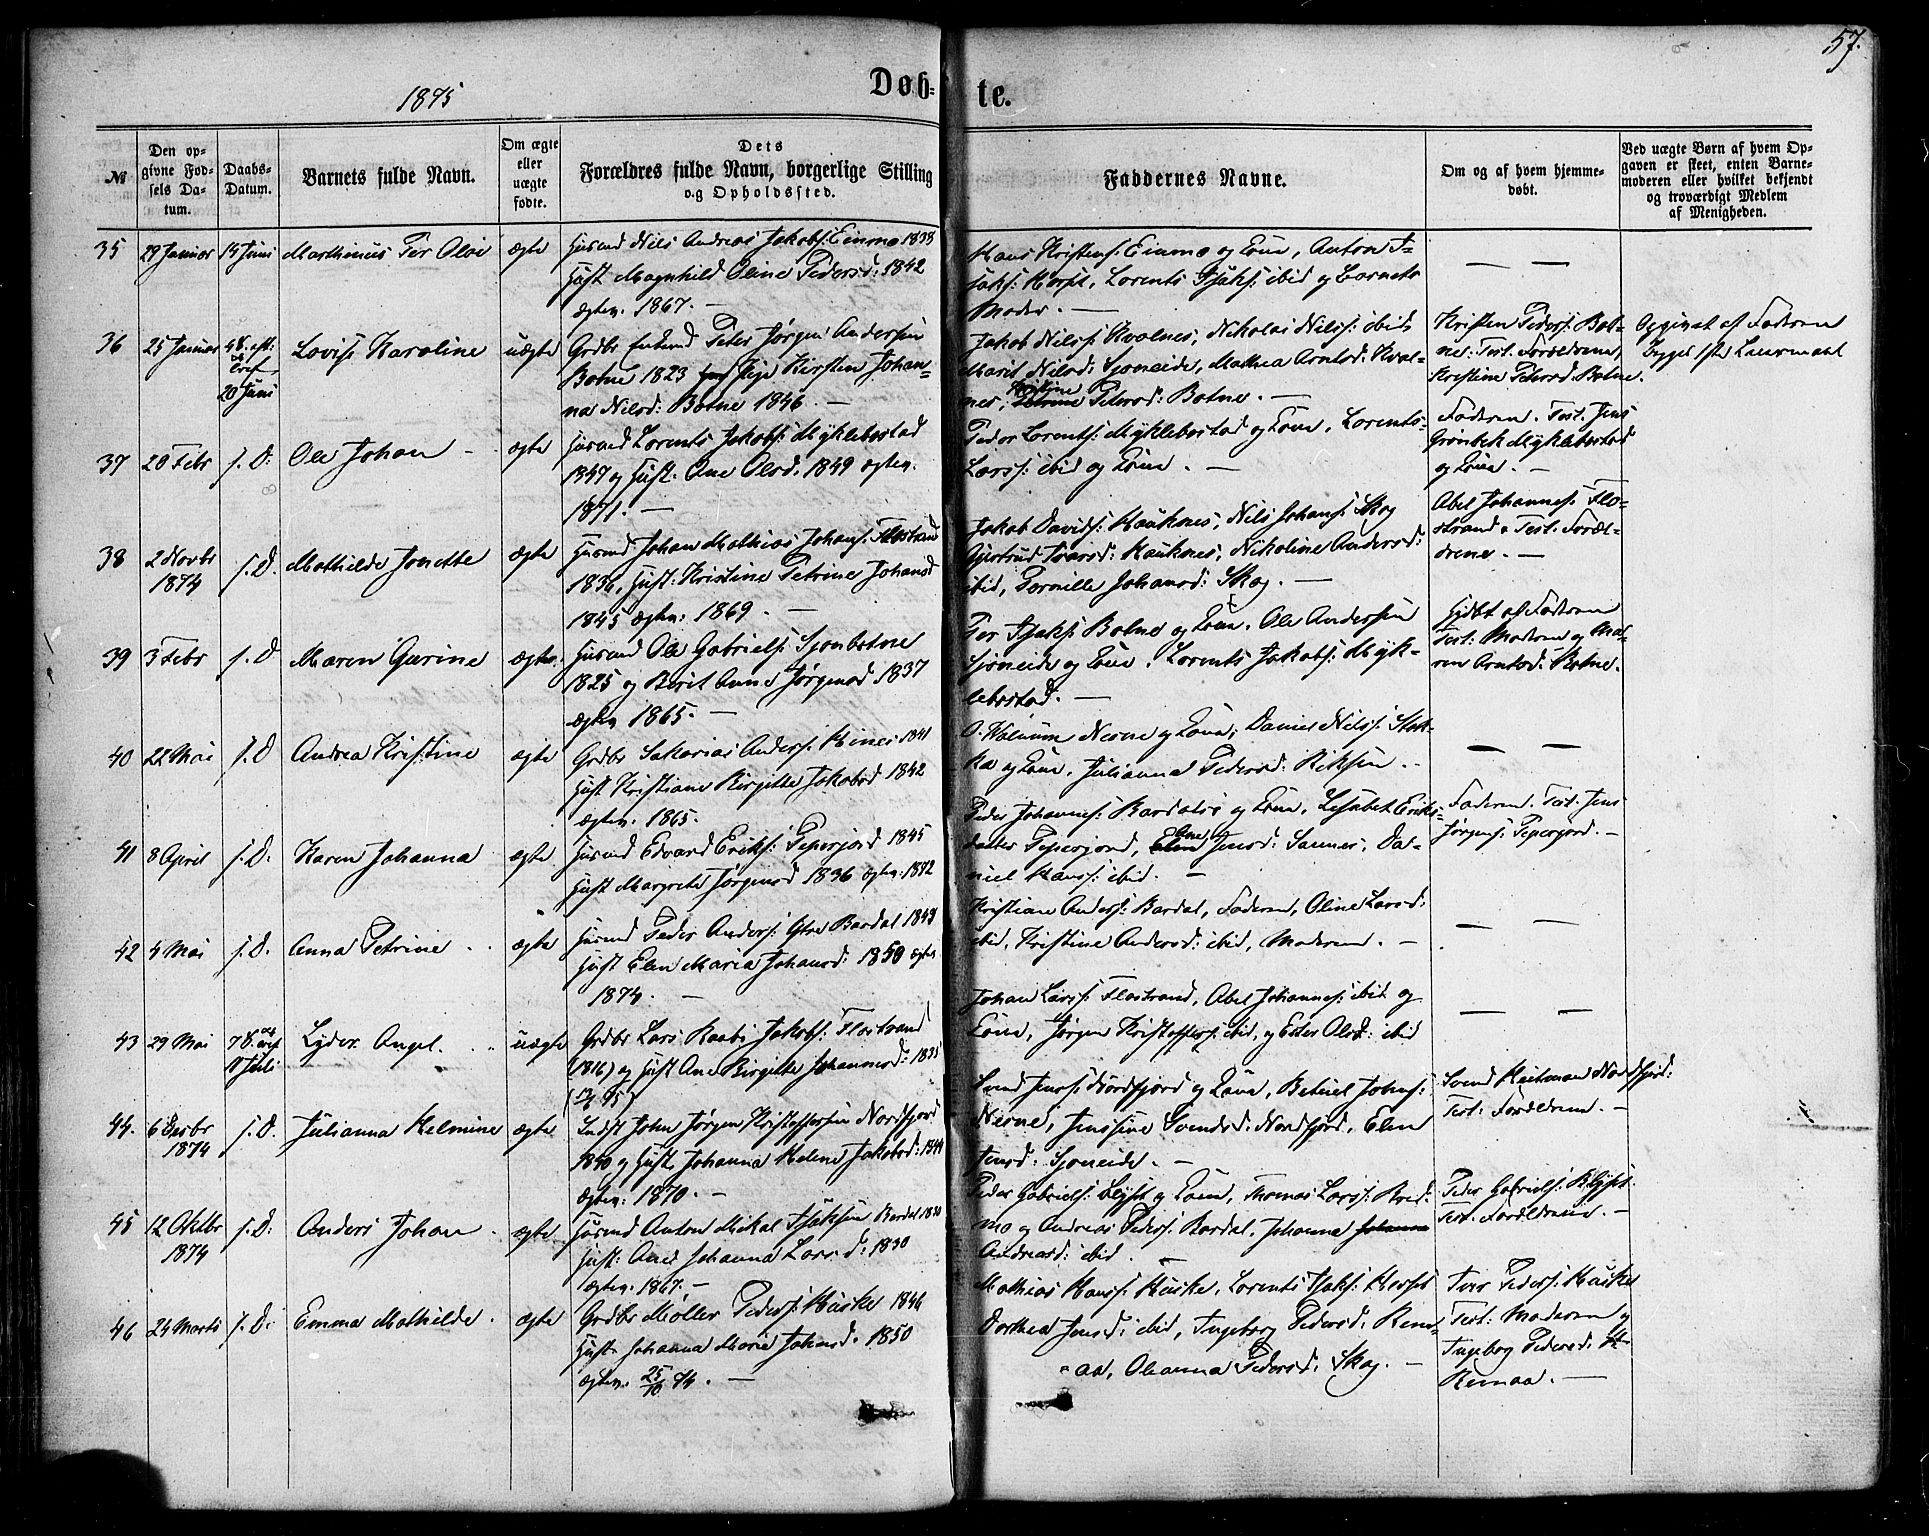 57.
1875
Døb-
te.
№
Den op-
givne Fød-
sels Da-
tum.
Daabs-
Datum.
Barnets fulde Navn.
Om ægte
eller
uægte
fødte.
Dets
Forældres fulde Navn, borgerlige Stilling
og Opholdssted.
Faddernes Navne.
Om og af hvem hjemme-
døbt.
Ved uægte Børn af hvem Op-
gaven er skeet, enten Barne-
moderen eller hvilket bekjendt
og troværdigt Medlem
af Menigheden.
35 29 Januar 14 Juni Marthinus Per Olai ægte Husmd Nils Andreas Jakobs: Einmo 1838
Hust Magnhild Oline Pedersd: 1842
ægtev. 1867. —
Hans Kristens: Einmo og Kone, Anton I-
saks: Horset, Lorents Isaks: ibid og Barnets
Moder. —
— —
36 25 Januar 20 Juni Lovise Karoline uægte Grdbr Enkemd Peter Jørgen Andersen
Botne 1823 Pige Kirsten Johan-
na Nilsd: Botne 1846. —
Jakob Nilss: Kvalnes, Nikolai Nilss: ibid
Marit Nilsd: Sjoneide, Mathea Arntsd: Kval-
nes, Kristine Petrine Pedersd: Botne. —
Kristen Peders: Bot-
ne. Test. Forældrene,
Kristine Pedersd: Botne.
Opgivet af Faderen
37 20 Febr s. D: Ole Johan ægte Husmd Lorents Jakobs: Myklebostad
1847 og Hust. Ane Olsd. 1849 ægtev.
1871. —
Peder Lorents: Myklebostad og Kone, Lorents
Larss: ibid og Kone. —
Faderen. Test. Jens
Grønbek Myklebostad
og Kone. —
38 2 Novbr
1874 s. D. Mathilde Jonette ægte Husmd Johan Mathias Johans: Flostrand
1836, Hust: Kristine Petrine Johansd
1845 ægtev: 1869. —
Jakob Davids: Hauknes, Nils Johans: Skog
Gjertrud Ivarsd: Hauknes, Nikoline Andersd:
ibid, Pernille Johansd: Skog. —
Abel Johannes: Flo-
strand. Test: Foræl-
drene. —
39 3 Febr s. D Maren Gurine ægte Husmd Ole Gabriels: Sjonbotne
1825 og Berit Anne Jørgensd 1837
ægtev 1865. —
Per Isaks: Botne og Kone. Ole Andersen
Sjoneide og Kone. Lorents Jakobs: Myk-
lebostad. —
Hjdbt af Faderen
Test: Moderen og Ma-
ren Arntsd: Botne.
40 22 Mai s. D Andrea Kristine ægte Grdbr Sakarias Anders: Hines 1841
Hust Kristiane Birgitte Jakobsd 1842
ægtev. 1865.
Nerne og Kone, Daniel Nilss: Stok-
ka og Kone, Julianna Pedersd:
— —
41 8 April s. D. Karen Johanna ægte Husmd Edvard Eriks: Pepersjord 1845
Hust Margrete Jørgensd 1836 ægtev: 1872
Peder Johannes: Bardalsø og Kone, Lisabet Eriks-
datter Pepersjord, Ane Elen Jensd: Sannes, Da-
niel Hanss: ibid. —
Faderen. Test. Jens
Jørgens: Pepersjord. —
42 4 Mai s. D. Anna Petrine ægte Husmd Peder Anders: Ytre Bardal 1848
Hust Elen Maria Johansd: 1850 ægtev
1874. —
Kristian Anders: Bardal, Faderen, Oline Larsd:
ibid, Kristine Andersd: ibid, Moderen. —
— —
43 29 Mai 11 Juli Lyder Angel. uægte Grdbr Lars Raabi Jakobs: Flostrand
(1816) og Hust Ane Birgitte Johannesd: 1835
Johan Larss: Flostrand, Abel Johannes: ibid og
Kone, Jørgen Kristoffers: ibid, og Ester Olsd: ibid
— —
44. 6 Decbr
1874 s. D. Julianna Helmine ægte Indst John Jørgen Kristoffersen Nordfjord
1840 og Hust. Johanna Helene Jakobsd: 1844
ægtev: 1870. —
Svend Jenss: Nordfjord og Kone, Betuel Johns:
Nerne, Jensine Svendsd: Nordfjord, Elen
Jensd: Sjoneide. —
Svend Heitman Nordfjord:
Test: Forældrene. —
45 12 Oktbr
1874 s. D: Anders Johan ægte Husmd Anton Mikal Isaksen Bardal 1830
Hust: Ane Johanna Larsd: 1830
ægtev. 1867. —
Peder Gabriels: og Kone, Thomas Larss: Bred-
mo og Andreas Peders: Bardal, Johanna Johanna
Andreasd: ibid. —
Peder Gabriels:
Test: Forældrene. —
46 24 Marts s. D: Emma Mathilde ægte Grdbr Møller Peders: Huske 1846
Hust. Johanna Marie Johansd. 1850
ægtev. 25/10 74. —
Mathias Hanss: Huske, Lorents Isaks: Horset
Dorthea Jensd: ibid, Ingeborg Pedersd: Rem-
aa, Oleanna Pedersd: Skog. —
Iver Peders: Huske
Test: Moderen og
Ingebog Pedersd:
Remaa. —